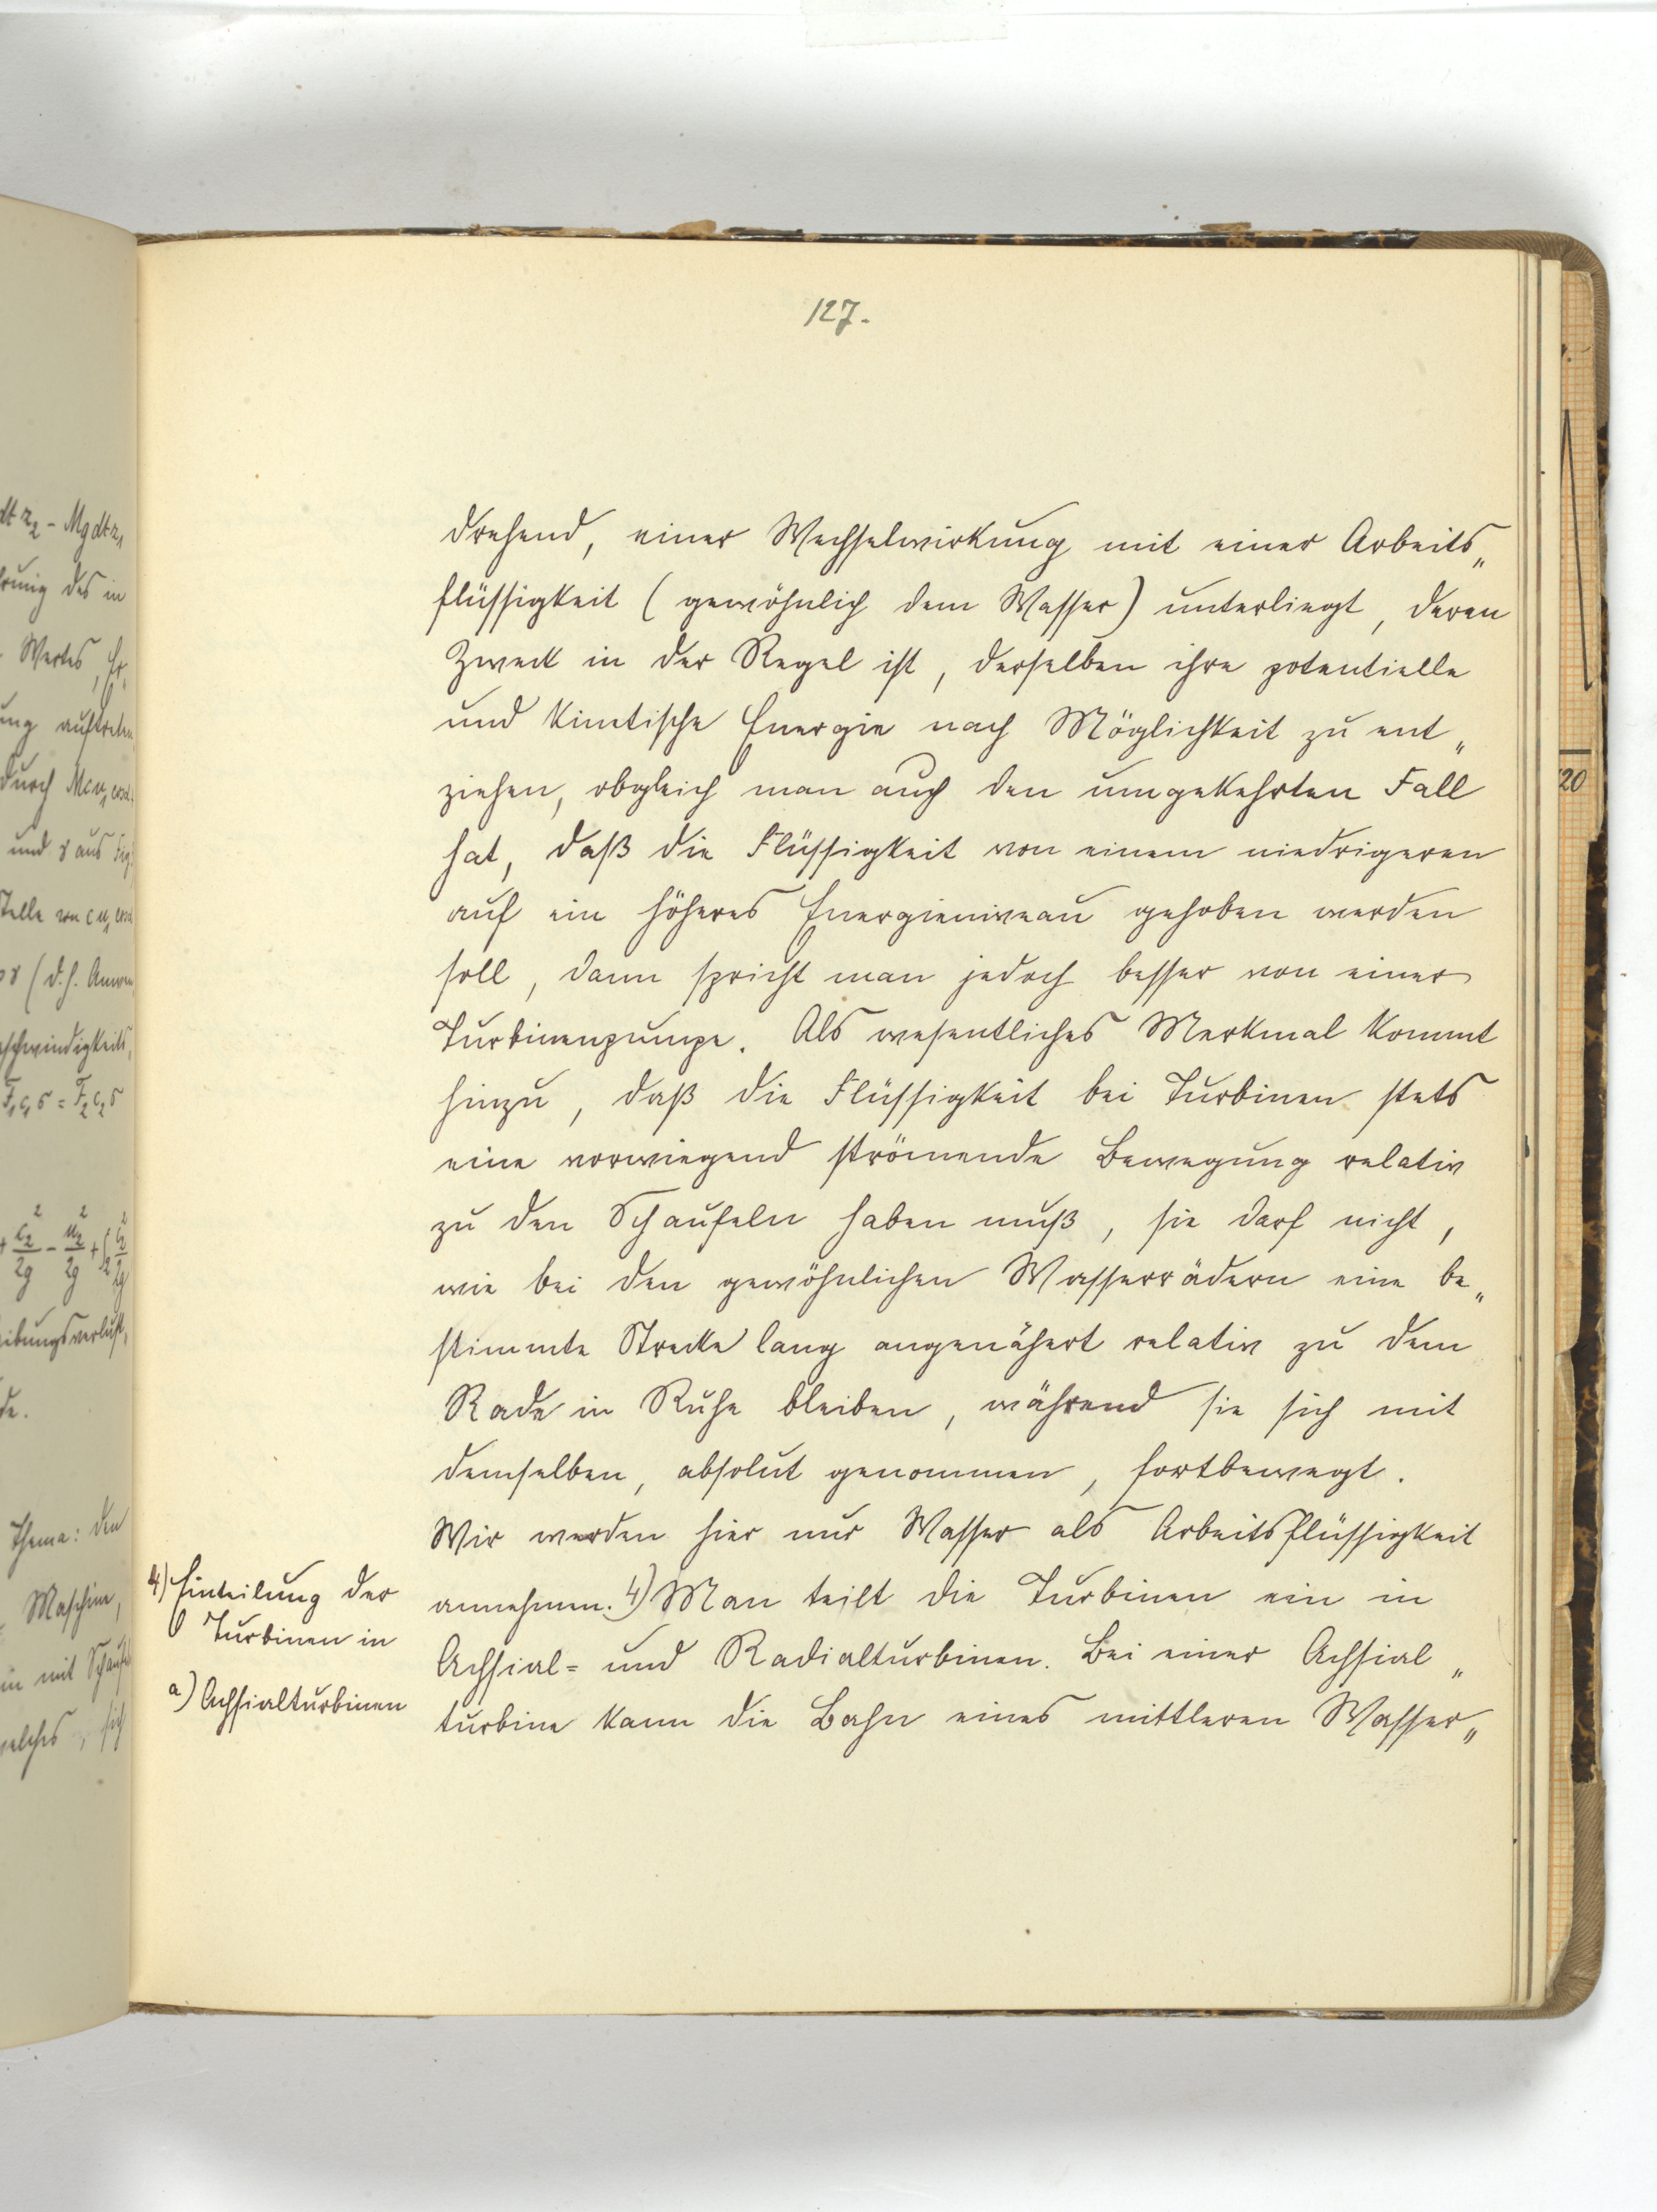 127.
drehend, einer Wechselwirkung mit einer Arbeits„
flüssigkeit (gewöhnlich dem Wasser) unterliegt, deren
Zweck in der Regel ist, derselben ihre potentielle
und kinetische Energie nach Möglichkeit zu ent„
ziehen, obgleich man auch den umgekehrten Fall
hat, daß die Flüssigkeit von einem niedrigeren
auf ein höheres Energieniveau gehoben werden
soll, dann spricht man jedoch besser von einer
Turbinenpumpe. Als wesentliches Merkmal kommt
hinzu, daß die Flüssigkeit bei Turbinen stets
eine vorwiegend strömende Bewegung relativ
zu den Schaufeln haben muß, sie darf nicht,
wie bei den gewöhnlichen Wasserrädern eine be„
stimmte Strecke lang angenähert relativ zu dem
Rade in Ruhe bleiben, während sie sich mit
demselben, absolut genommen, fortbewegt.
Wir werden hier nur Wasser als Arbeitsflüssigkeit
annehmen. 4) Man teilt die Turbinen ein in
Achsial= und Radialturbinen. Bei einer Achsial„
turbine kann die Bahn eines mittleren Wasser„
4) Einteilung der
Turbinen in
a) Achsialturbinen
dt r2 - Mg dt r1
des in
Wertes, Er„
auftreten
durch Mcu1 cosα
und γ aus Fig.
(d.h.
F1c1σ = F2c2σ
Thema: den
Maschine,
mit
welches, sich
20